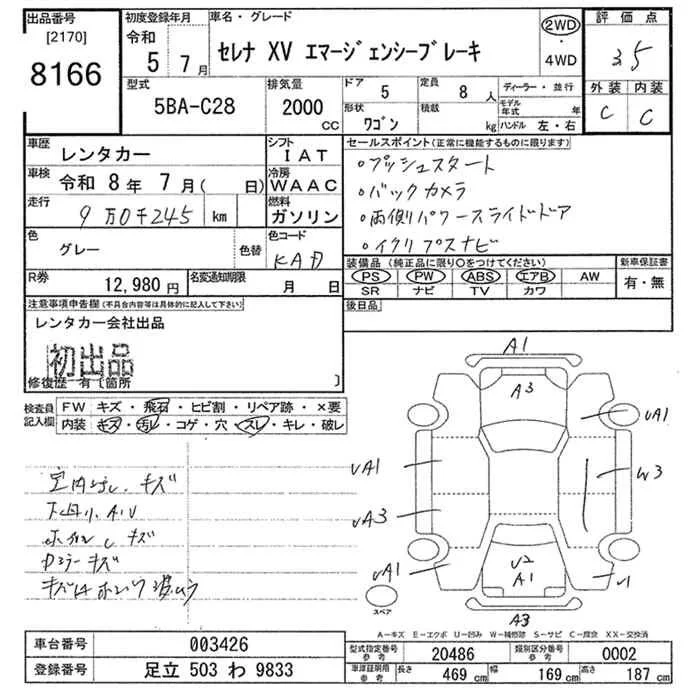 出品番号
[2170]
8166
初度登録年月
令和
5 7月
車名・グレード
セレナ XV エマージェンシーブレーキ
2WD
・
4WD
評価点
3.5
外装 内装
C C
型式
5BA-C28
排気量
2000
CC
ドア
5
定員
8人
形状
ワゴン
積載
kg
ディーラー・並行
モデル年式 年
ハンドル 左・右
車歴
レンタカー
シフト
IAT
車検
令和 8年 7月( 日)
冷房
WAAC
走行
9万0千245 km
燃料
ガソリン
色
グレー
色替
色コード
KAD
R券
12,980円
名変通知期限
月 日
セールスポイント(正常に機能するものに限ります)
○プッシュスタート
○バックカメラ
○両側パワースライドドア
装備品(純正品に限り○をつけてください)
PS PW ABS エアB AW
SR ナビ TV カワ
新車保証書
有・無
後日品
注意事項申告欄(不具合内容等は具体的に記入して下さい)
レンタカー会社出品
初出品
修復歴 有〔箇所 〕
検査員
記入欄
FW キズ・飛石・ヒビ割・リペア跡・×要
内装 キズ・汚レ・コゲ・穴・スレ・キレ・破レ
キズ
キズ
キズ
A1
A3
UA1
UA1
W3
UA3
UA1
U2
A1
A3
スペア
A-キズ E-エクボ U-凹み W-補修跡 S-サビ C-腐食 XX-交換済
車台番号
003426
登録番号
足立 503 わ 9833
型式指定番号
参考
20486
類別区分番号
参考
0002
車庫証明用
参考
長さ
469 cm
幅
169 cm
高さ
187 cm